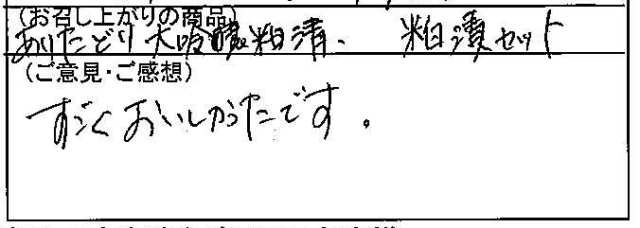 (お召し上がりの商品)
ありたどり大吟醸粕漬、粕漬セット
(ご意見・ご感想)
すごくおいしかったです。